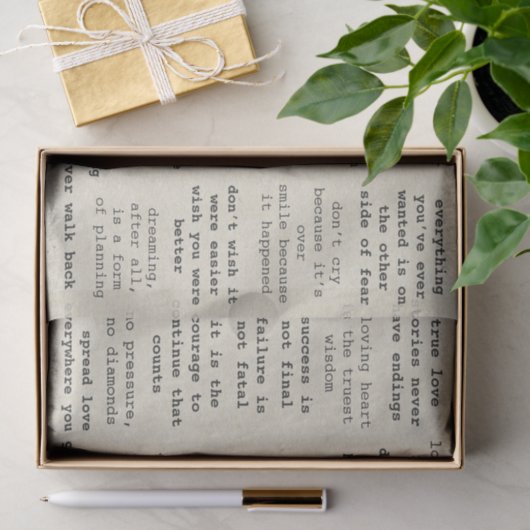 everything
you've ever
wanted is on
the other
side of fear
true love
tories never
ave endings
loving heart
is the truest
wisdom
don't cry
because it's
over
smile because
it happened
success is
not final
failure is
not fatal
it is the
courage to
continue that
counts
don't wish it
were easier
wish you were
better
dreaming,
after all,
is a form
of planning
no pressure,
no diamonds
spread love
everywhere you g
ver walk back